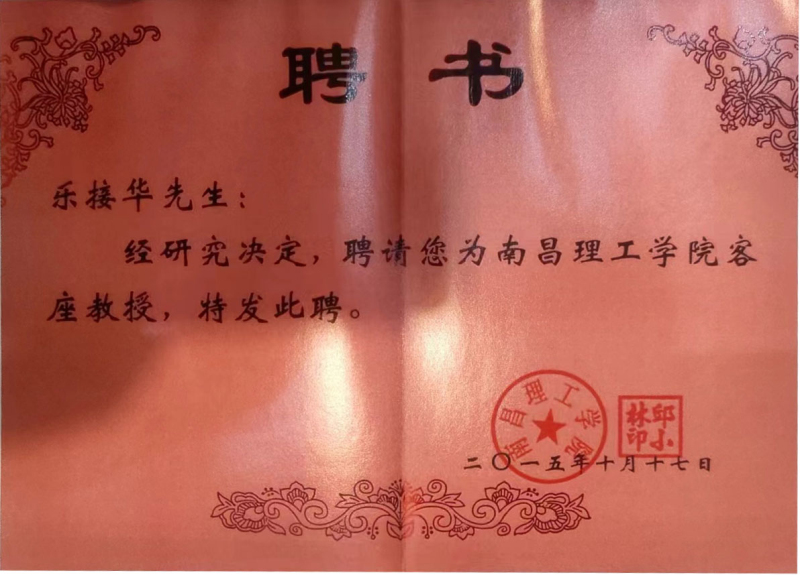 聘书
乐接华先生：
经研究决定，聘请您为南昌理工学院客
座教授，特发此聘。
南昌理工学院
邱小林印
二〇一五年十月十七日